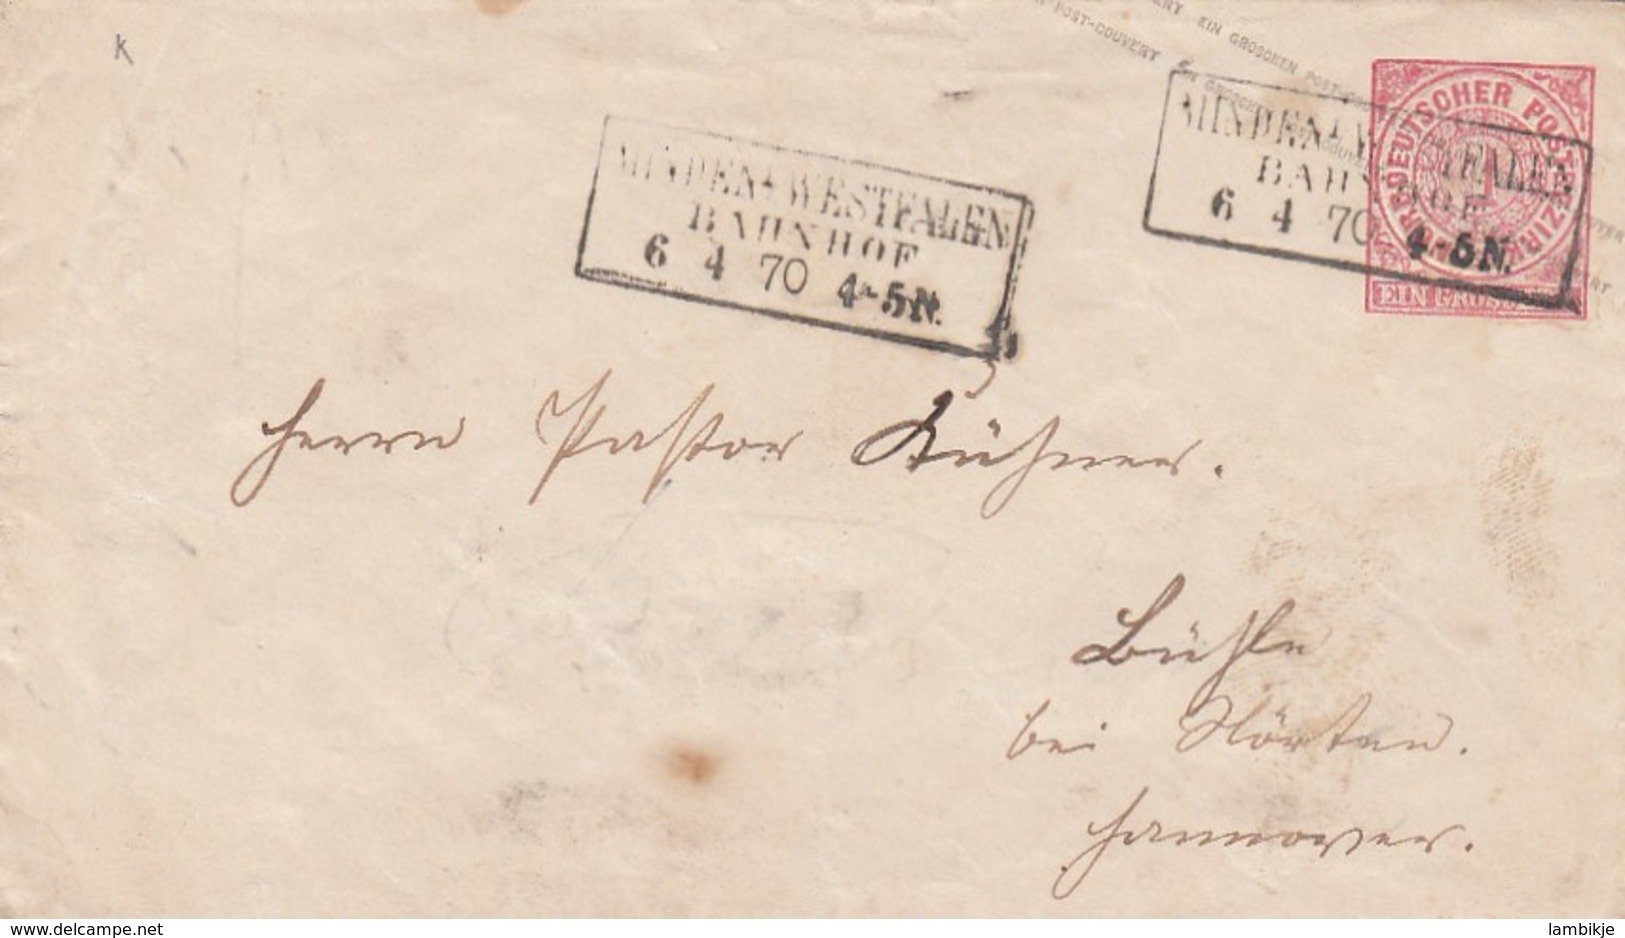 EIN GROSCHEN POST-COUVERT
POST-COUVERT EIN GROSCHEN
NORDDEUTSCHER POSTBEZIRK
1
EIN GROSCHEN
MINDEN WESTFALEN
BAHNHOF
6 4 70 4-5N.
MINDEN WESTFALEN
BAHNHOF
6 4 70 4-5N.
Herrn Pastor Kühner.
Bühle
bei Nörten.
Hannover.
delcampe.net
lambikje